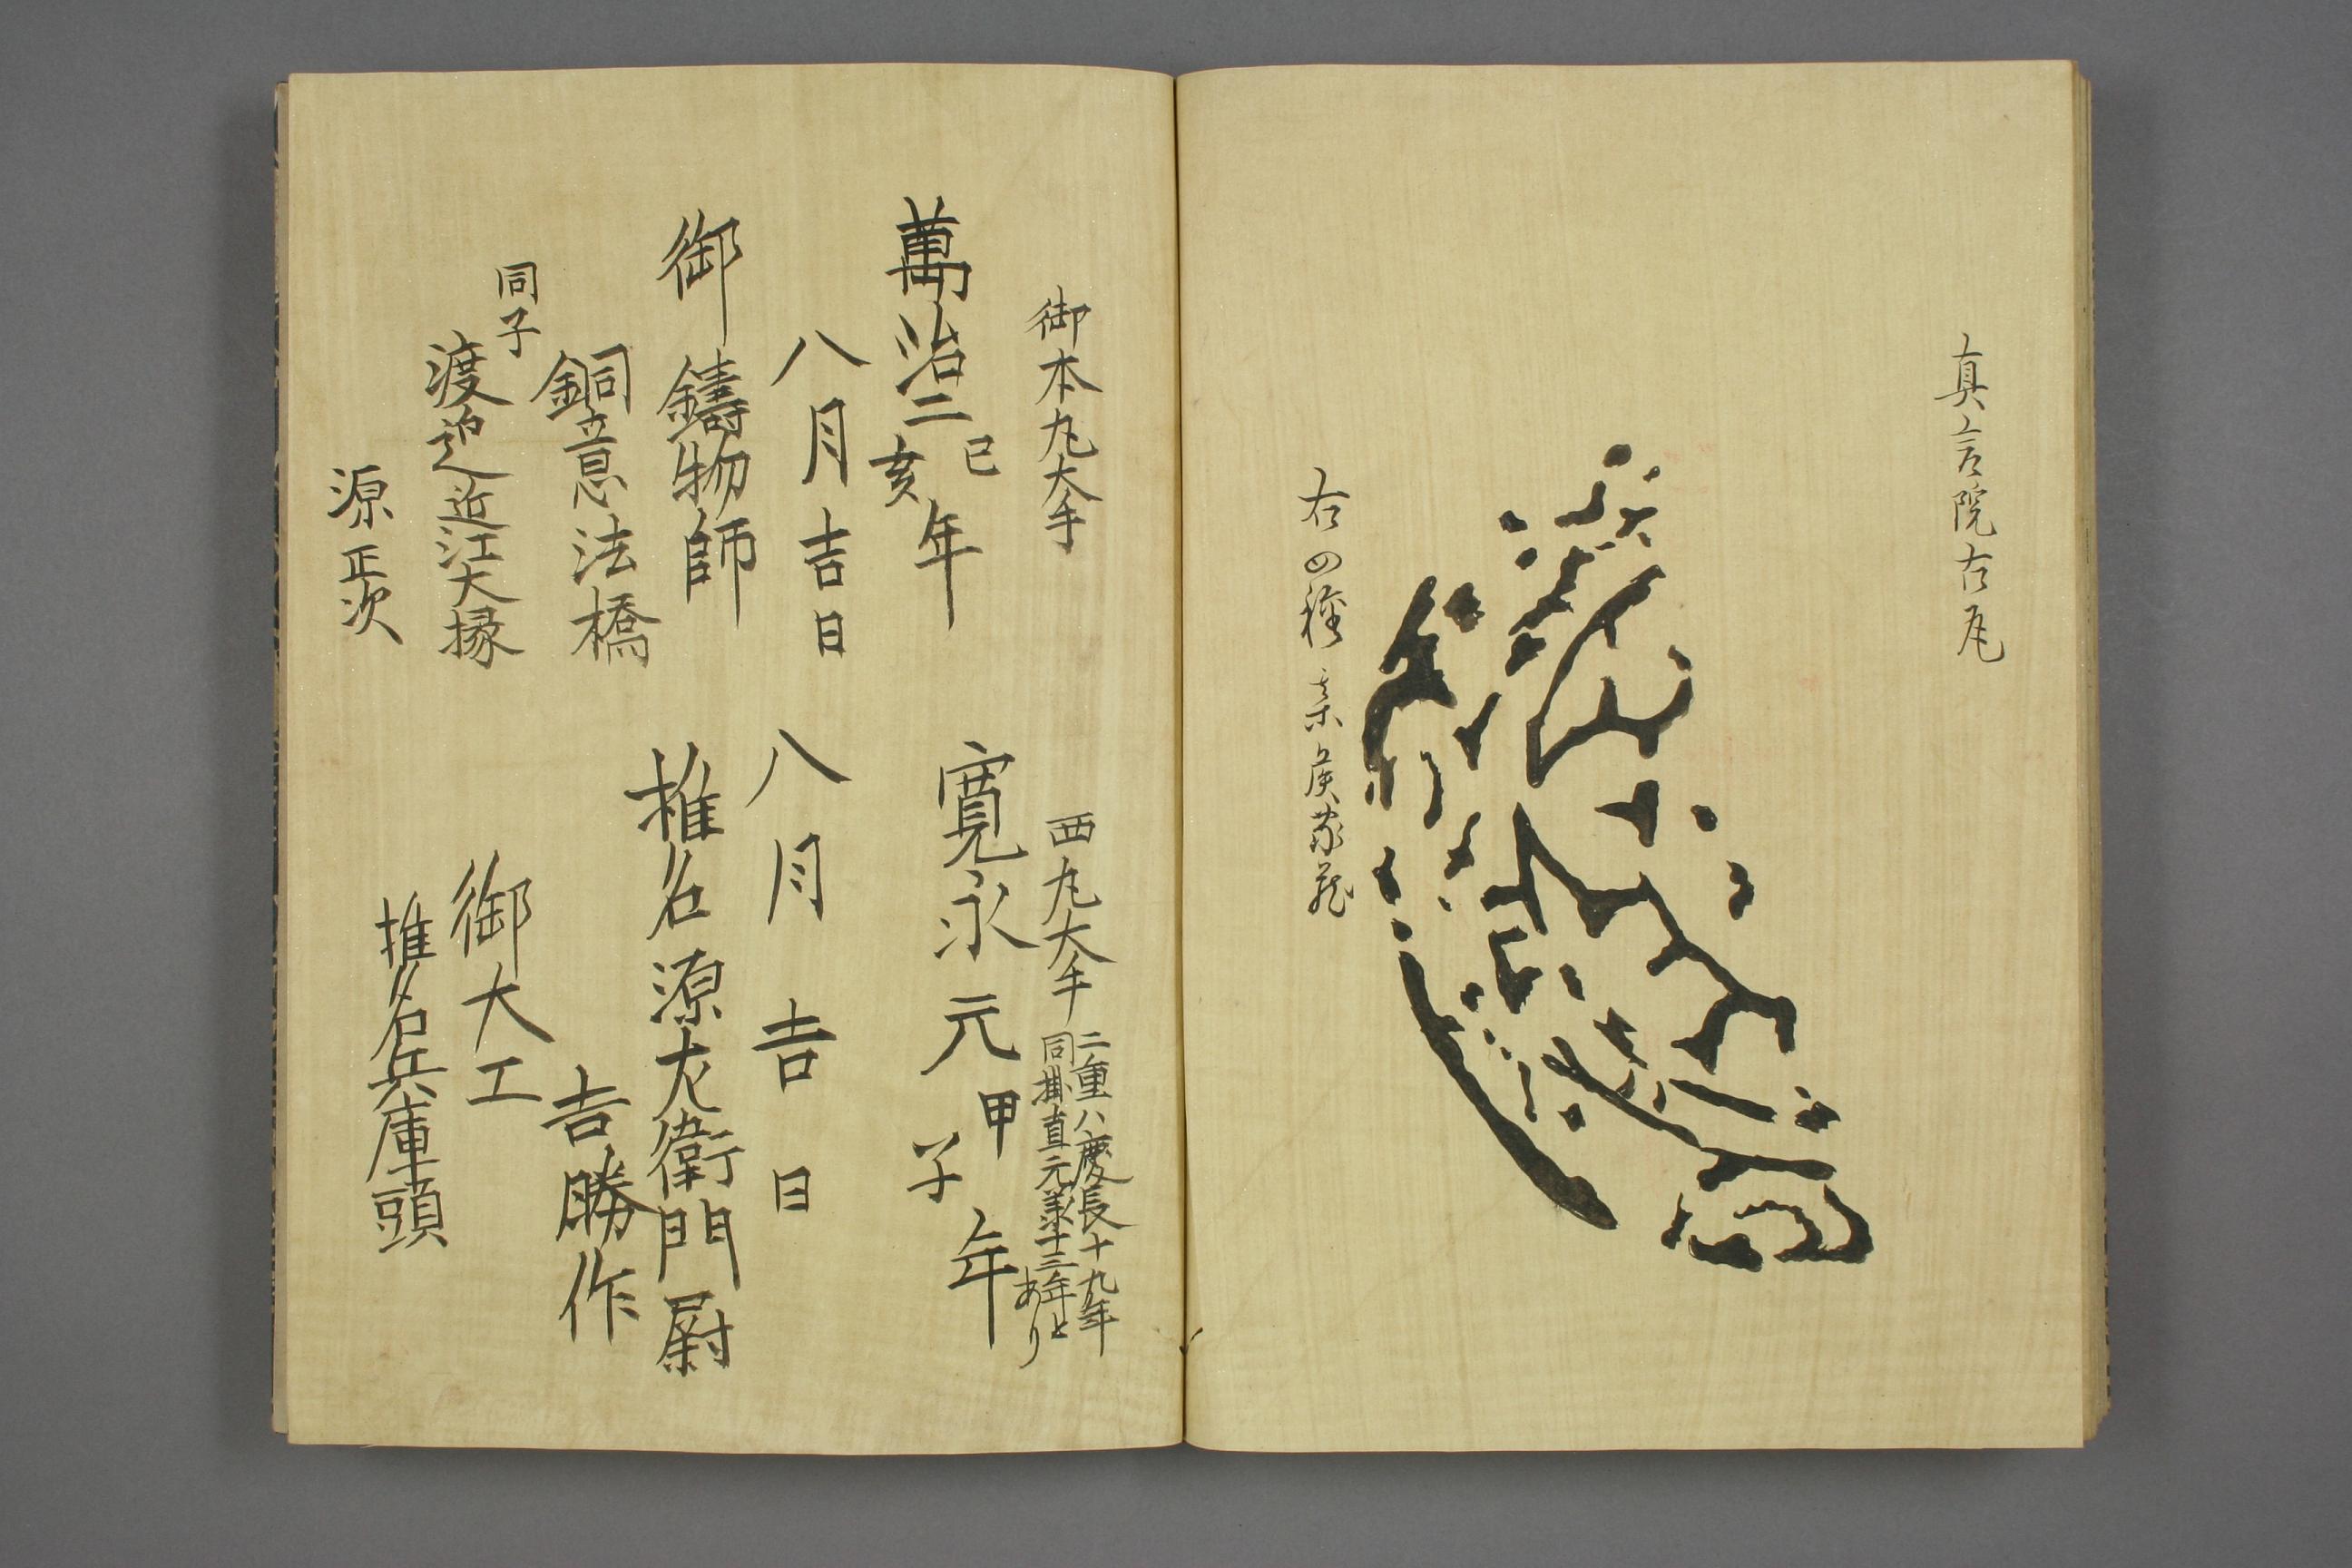 真言院古瓦
右四種桑侯家蔵
御本丸大手
萬治二己亥年
八月吉日
御鑄物師
銅意法橋
同子
渡辺近江大掾
源正次
西丸大手
二重ハ慶長十九年
同掛直元義十三年と
あり
寛永元甲子年
八月吉日
椎名源左衛門尉
吉勝作
御大工
椎名兵庫頭